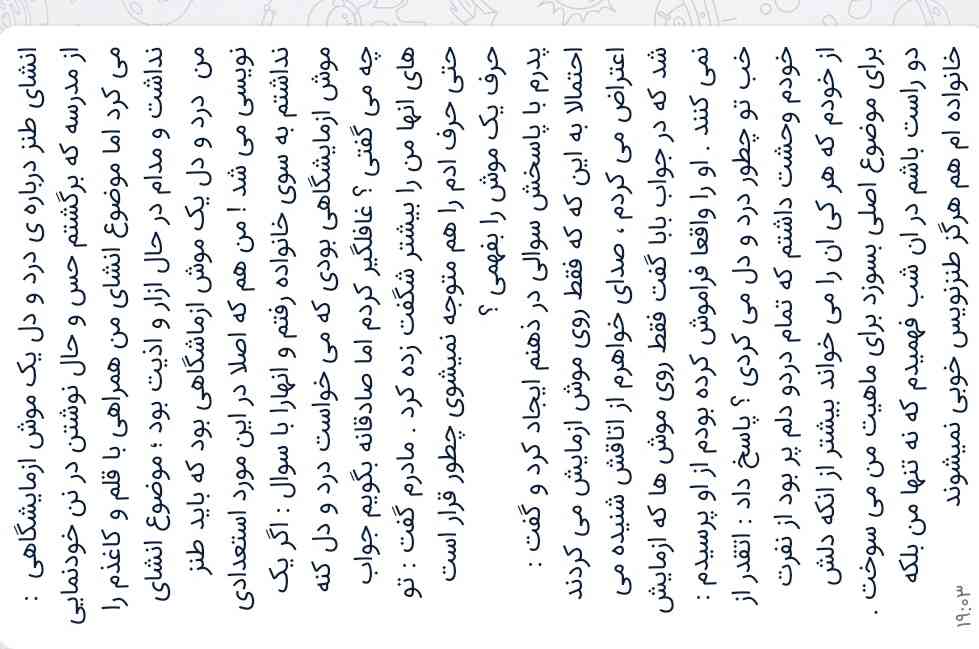 انشای طنز درباره ی درد و دل یک موش ازمایشگاهی :
از مدرسه که برگشتم حس و حال نوشتن در نن خودنمایی
می کرد اما موضوع انشای من همراهی با قلم و کاغذم را
نداشت و مدام در حال ازار و اذیت بود ؛ موضوع انشای
من درد و دل یک موش ازماشگاهی بود که باید طنز
نویسی می شد ! من هم که اصلا در این مورد استعدادی
نداشتم به سوی خانواده رفتم و انهارا با سوال : اگر یک
موش ازمایشگاهی بودی که می خواست درد و دل کنه
چه می گفتی ؟ غافلگیر کردم اما صادقانه بگویم جواب
های انها من را بیشتر شگفت زده کرد . مادرم گفت : تو
حتی حرف ادم را هم متوجه نمیشوی چطور قرار است
حرف یک موش را بفهمی ؟
پدرم با پاسخش سوالی در ذهنم ایجاد کرد و گفت :
احتمالا به این که که فقط روی موش ازمایش می کردند
اعتراض می کردم ، صدای خواهرم از اتاقش شنیده می
شد که در جواب بابا گفت فقط روی موش ها که ازمایش
نمی کنند . او را واقعا فراموش کرده بودم از او پرسیدم :
خب تو چطور درد و دل می کردی ؟ پاسخ داد : انقدر از
خودم وحشت داشتم که تمام دردو دلم پر بود از نفرت
از خودم که هر کی ان را می خواند بیشتر از انکه دلش
برای موضوع اصلی بسوزد برای ماهیت من می سوخت .
دو راست باشم در ان شب فهمیدم که نه تنها من بلکه
خانواده ام هم هرگز طنزنویس خوبی نمیشوند
۱۹:۰۳